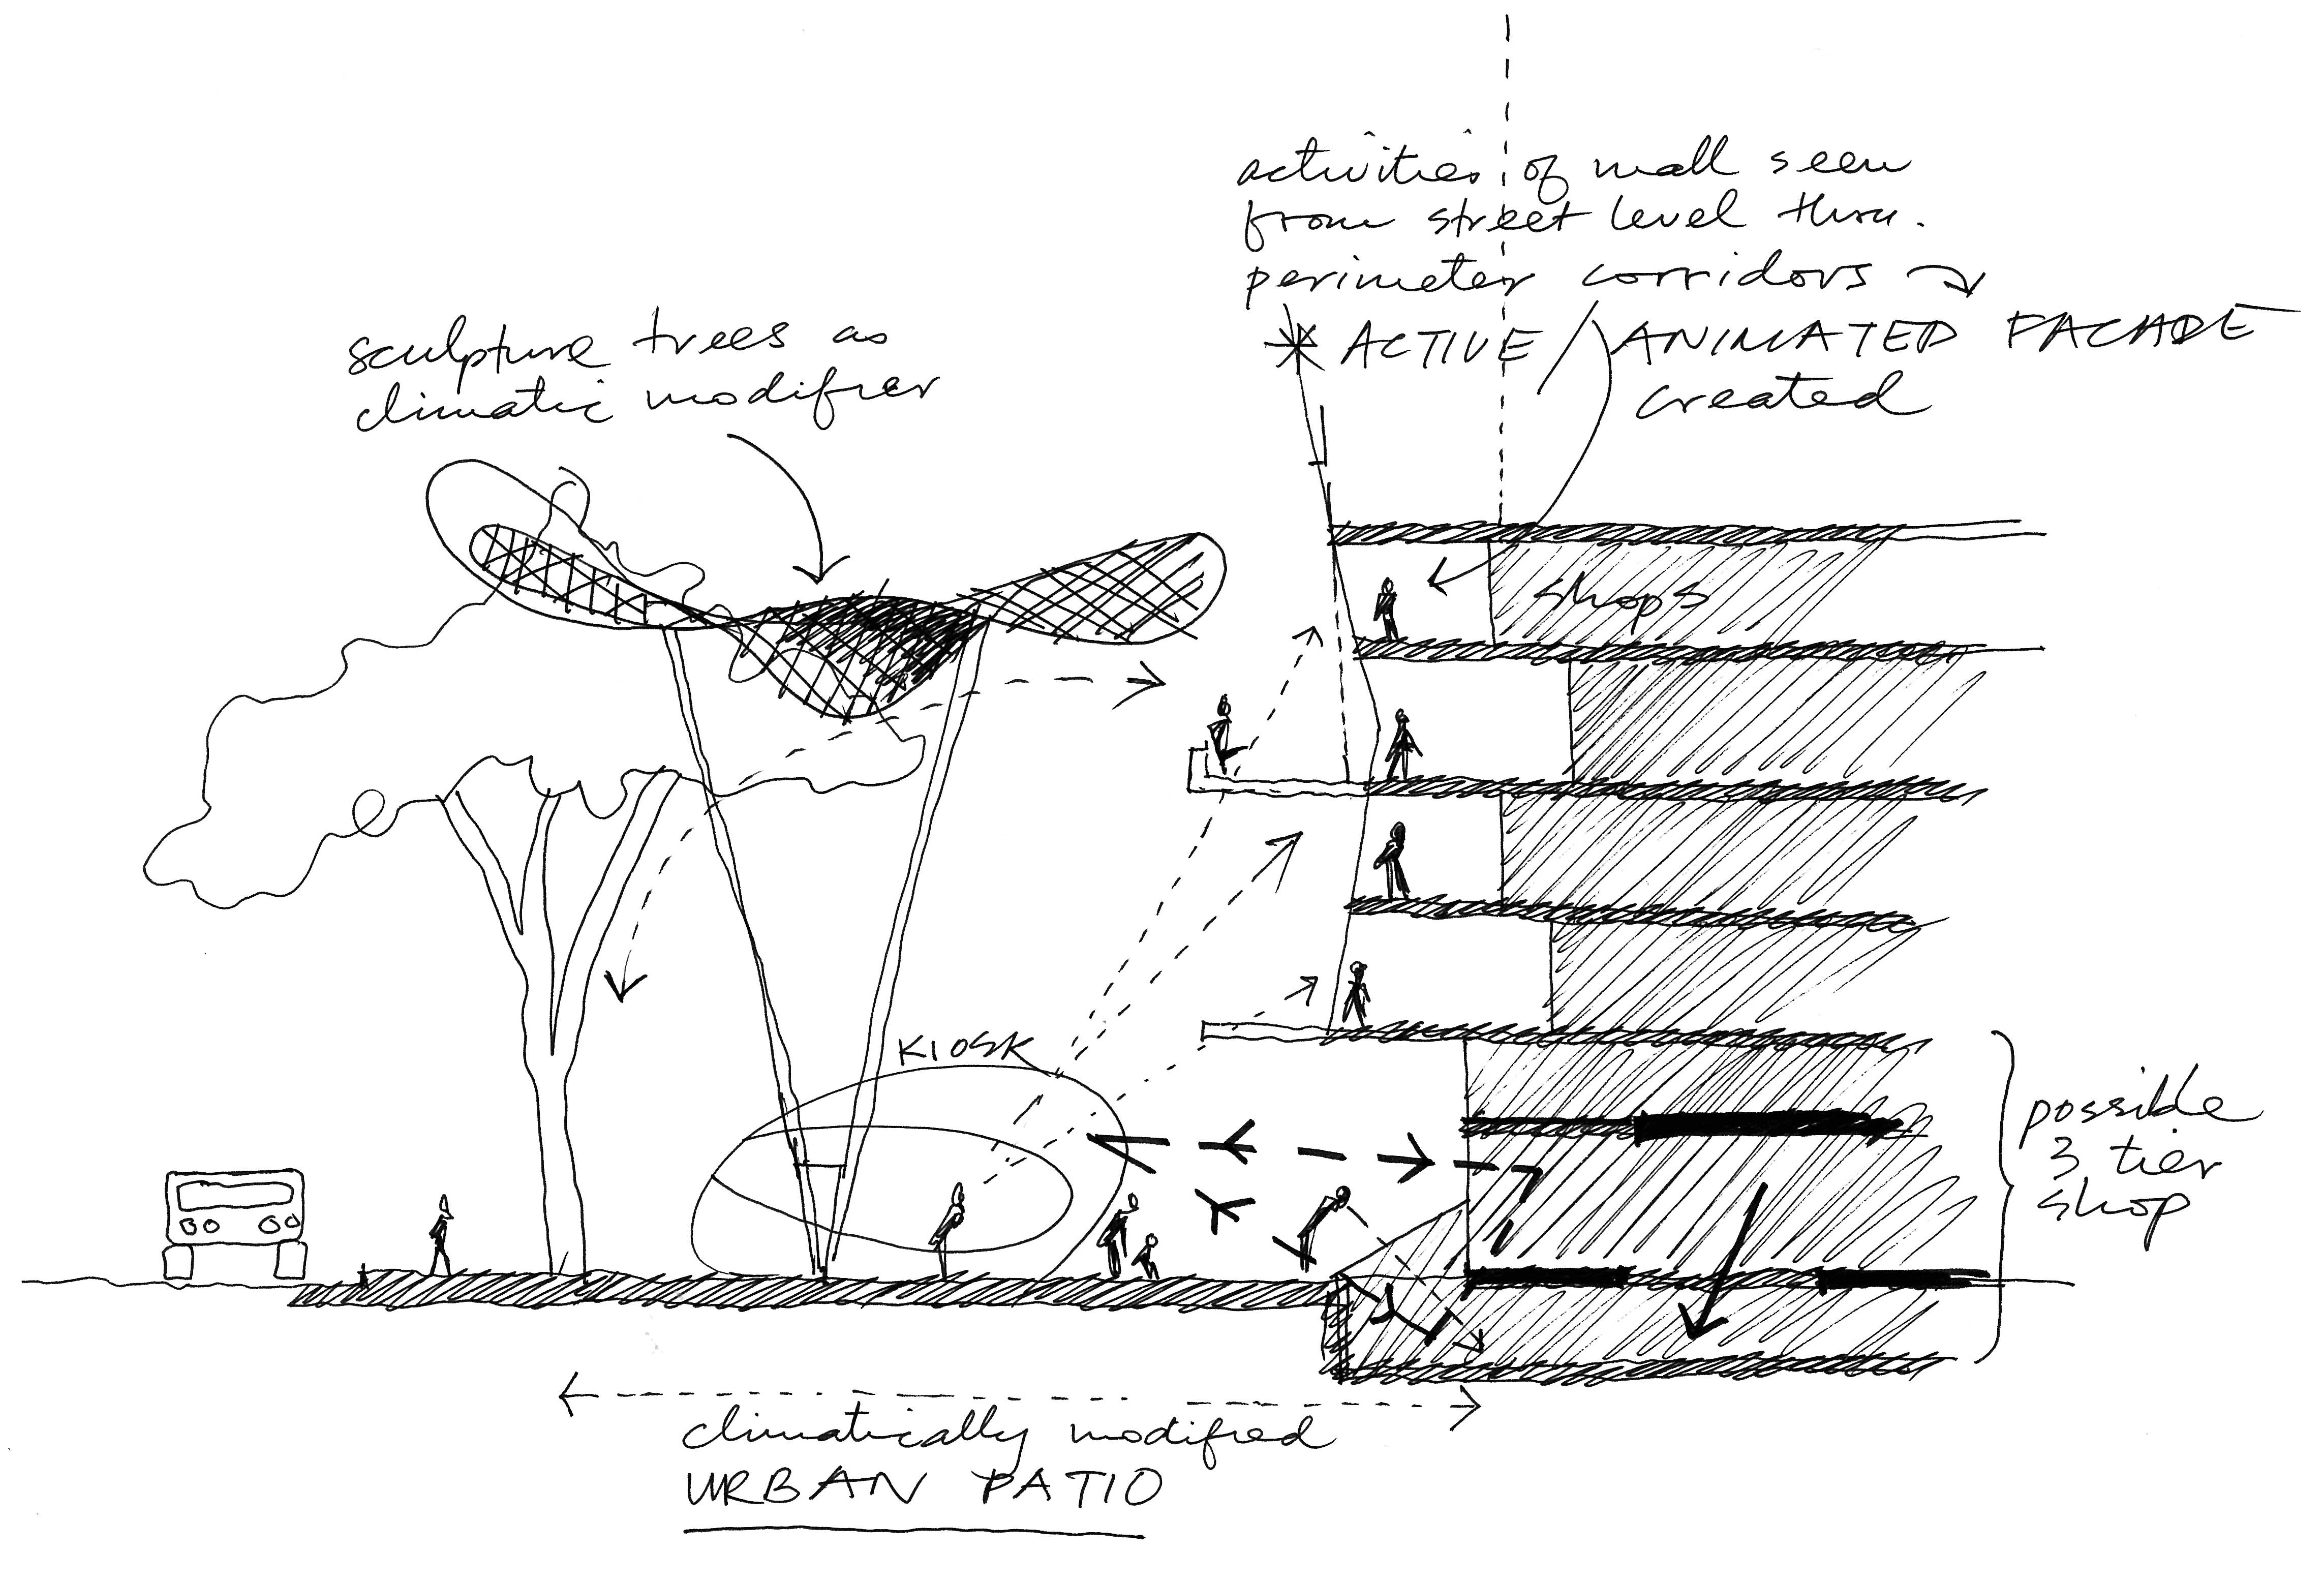 activities of mall seen
from street level thru.
perimeter corridors
* ACTIVE / ANIMATED FACADE
created
sculpture trees as
climatic modifier
shops
KIOSK
possible
3 tier
shop
climatically modified
URBAN PATIO